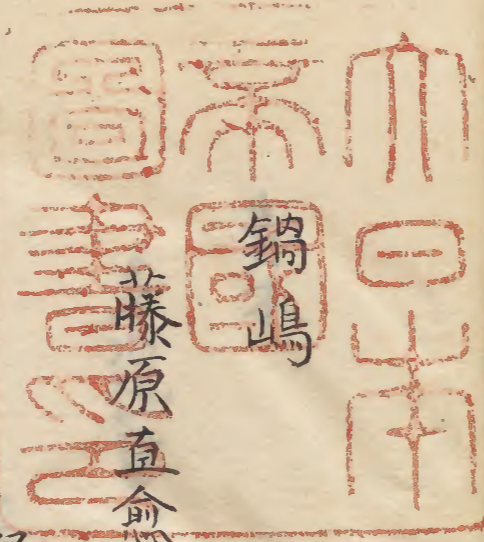 大日本
帝國
圖書印
鍋嶋
藤原直愈